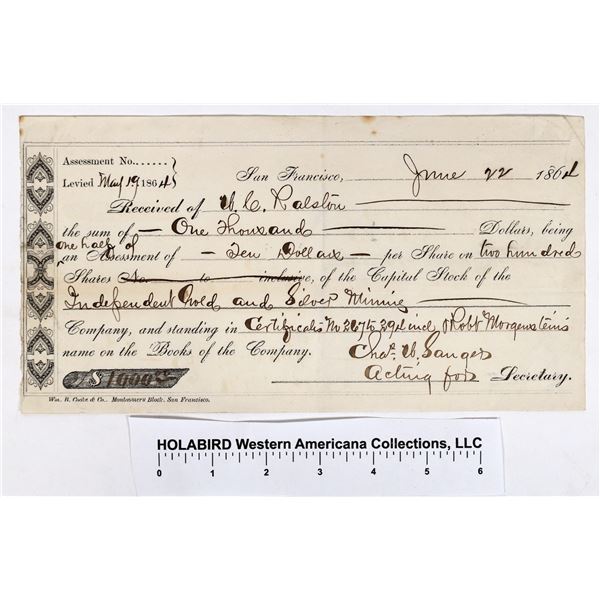 Assessment No......
Levied May 19 1864
San Francisco, June 22 1864
Received of W. C. Ralston
the sum of — One Thousand Dollars, being
one half of
an Assessment of — Ten Dollars — per Share on two hundred
Shares No. to inclusive, of the Capital Stock of the
Independent Gold and Silver Mining
Company, and standing in Certificates No 267 to 29 incl Robt Morgenstein's
name on the Books of the Company.
Chas. W. Sanger
$1000
Acting for Secretary.
Wm. B. Cooke & Co., Montgomery Block, San Francisco.
HOLABIRD Western Americana Collections, LLC
0 1 2 3 4 5 6